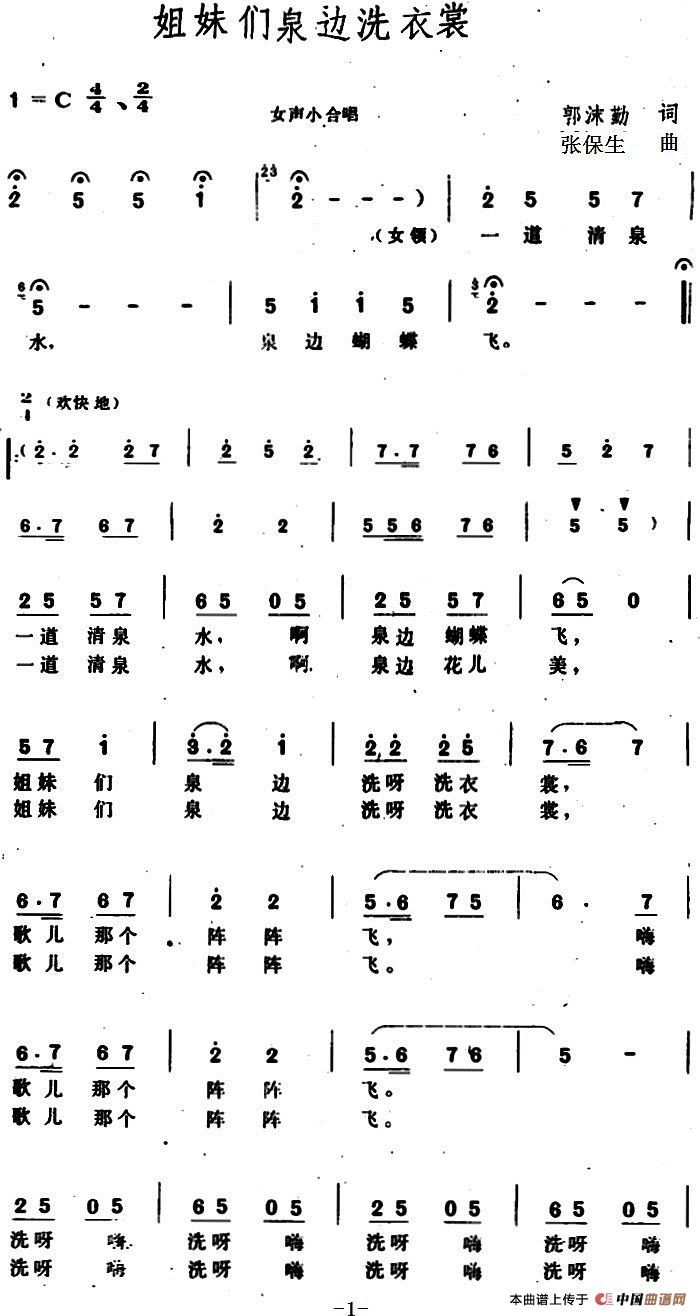 姐妹们泉边洗衣裳
1=C 4/4、2/4
女声小合唱
郭沫勤 词
张保生 曲
2 5 5 1 | 23 2 - - - ) | 2 5 5 7
(女领) 一道清泉
6 5 - - - | 5 1 1 5 | 3 2 - - - ‖
水, 泉边蝴蝶 飞。
2/4 (欢快地)
‖: (2·2 27 | 2 5 2 | 7·7 76 | 5 2 7 |
6·7 67 | 2 2 | 556 76 | 5 5 ) |
25 57 | 65 05 | 25 57 | 65 0 |
一道 清泉 水, 啊 泉边 蝴蝶 飞,
一道 清泉 水, 啊 泉边 花儿 美,
57 1 | 3·2 1 | 22 25 | 7·6 7 |
姐妹 们 泉 边 洗呀 洗衣 裳,
姐妹 们 泉 边 洗呀 洗衣 裳,
6·7 67 | 2 2 | 5·6 75 | 6· 7 |
歌儿 那个 阵 阵 飞, 嗨
歌儿 那个 阵 阵 飞。 嗨
6·7 67 | 2 2 | 5·6 76 | 5 - |
歌儿 那个 阵 阵 飞。
歌儿 那个 阵 阵 飞。
25 05 | 65 05 | 25 05 | 65 05 |
洗呀 嗨 洗呀 嗨 洗呀 嗨 洗呀 嗨
洗呀 嗨 洗呀 嗨 洗呀 嗨 洗呀 嗨
-1-
本曲谱上传于 中国曲谱网